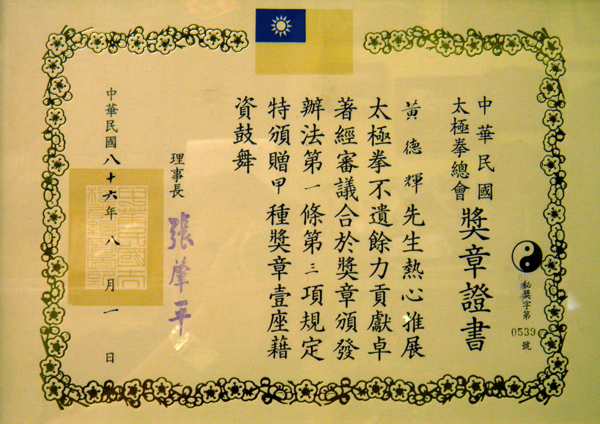 中華民國
太極拳總會
獎章證書
秘獎字第
0539
號
黃德輝先生熱心推展
太極拳不遺餘力貢獻卓
著經審議合於獎章頒發
辦法第一條第三項規定
特頒贈甲種獎章壹座藉
資鼓舞
理事長
張肇平
中華民國八十六年八月一日